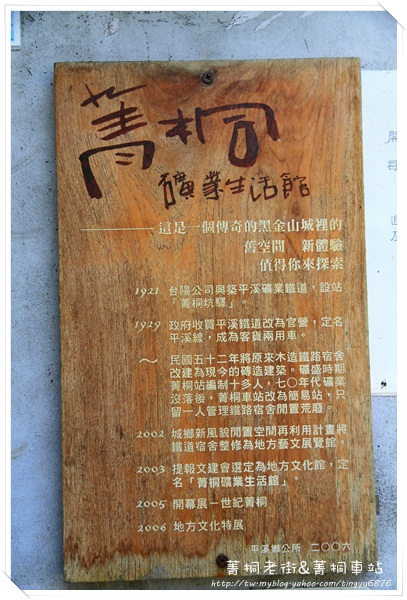 菁桐
礦業生活館
——這是一個傳奇的黑金山城裡的
舊空間 新體驗
值得你來探索
1921 台陽公司興築平溪礦業鐵道，設站
「菁桐坑驛」。
1929 政府收買平溪鐵道改為官營，定名
平溪線，成為客貨兩用車。
～ 民國五十二年將原來木造鐵路宿舍
改建為現今的磚造建築。礦盛時期
菁桐站編制十多人，七〇年代礦業
沒落後，菁桐車站改為簡易站，只
留一人管理鐵路宿舍閒置荒廢。
2002 城鄉新風貌閒置空間再利用計畫將
鐵道宿舍整修為地方藝文展覽館。
2003 提報文建會選定為地方文化館，定
名「菁桐礦業生活館」。
2005 開幕展－世紀菁桐
2006 地方文化特展
平溪鄉公所 二〇〇六
開
每
菁桐老街&菁桐車站
http://tw.myblog.yahoo.com/tingyu6876